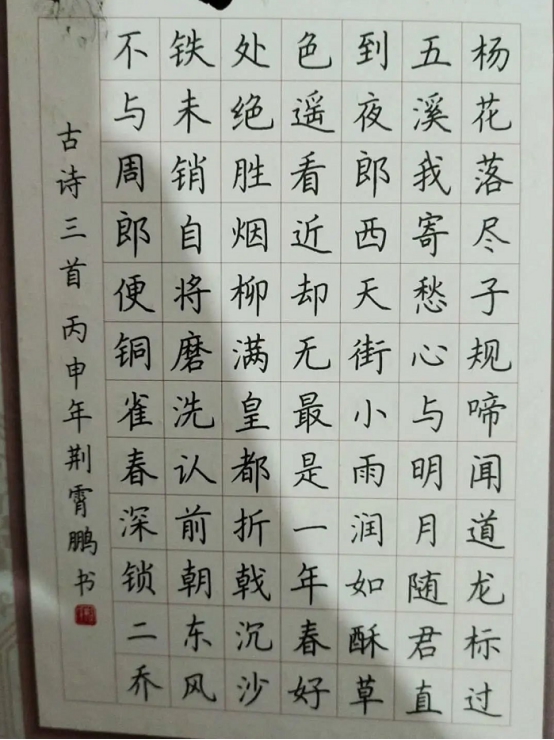 杨花落尽子规啼闻道龙标过
五溪我寄愁心与明月随君直
到夜郎西天街小雨润如酥草
色遥看近却无最是一年春好
处绝胜烟柳满皇都折戟沉沙
铁未销自将磨洗认前朝东风
不与周郎便铜雀春深锁二乔
古诗三首丙申年荆霄鹏书